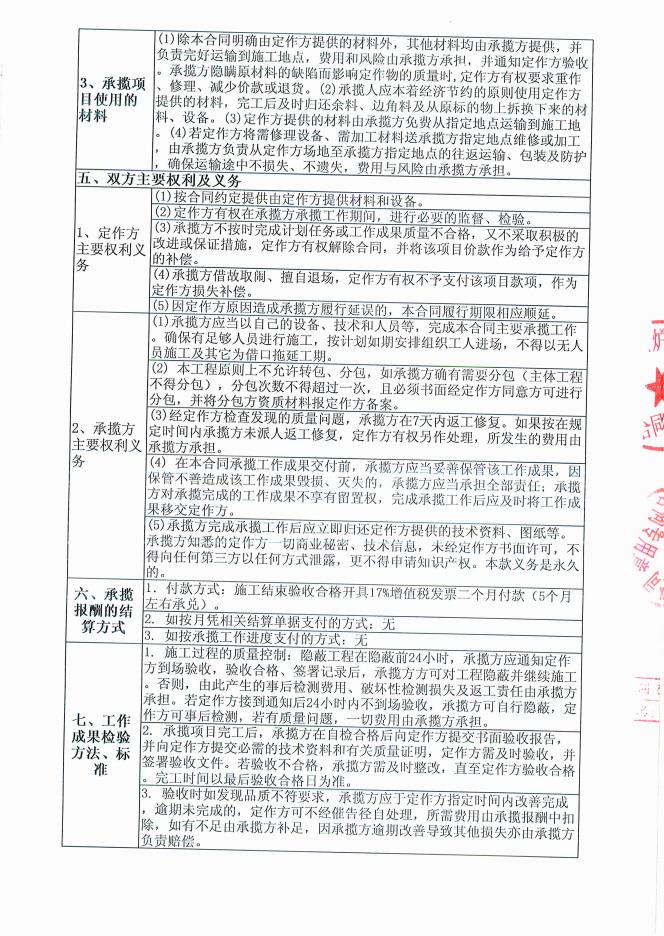 3、承揽项
目使用的
材料
(1)除本合同明确由定作方提供的材料外，其他材料均由承揽方提供，并
负责完好运输到施工地点，费用和风险由承揽方承担，并通知定作方验收
。承揽方隐瞒原材料的缺陷而影响定作物的质量时,定作方有权要求重作
、修理、减少价款或退货。(2)承揽人应本着经济节约的原则使用定作方
提供的材料，完工后及时归还余料、边角料及从原标的物上拆换下来的材
料、设备。(3)定作方提供的材料由承揽方免费从指定地点运输到施工地
。(4)若定作方将需修理设备、需加工材料送承揽方指定地点维修或加工
，由承揽方负责从定作方场地至承揽方指定地点的往返运输、包装及防护
，确保运输途中不损失、不遗失，费用与风险由承揽方承担。
五、双方主要权利及义务
1、定作方
主要权利义
务
(1)按合同约定提供由定作方提供材料和设备。
(2)定作方有权在承揽方承揽工作期间，进行必要的监督、检验。
(3)承揽方不按时完成计划任务或工作成果质量不合格，又不采取积极的
改进或保证措施，定作方有权解除合同，并将该项目价款作为给予定作方
的补偿。
(4)承揽方借故取闹、擅自退场，定作方有权不予支付该项目款项，作为
定作方损失补偿。
(5)因定作方原因造成承揽方履行延误的，本合同履行期限相应顺延。
2、承揽方
主要权利义
务
(1)承揽方应当以自己的设备、技术和人员等，完成本合同主要承揽工作
。确保有足够人员进行施工，按计划如期安排组织工人进场，不得以无人
员施工及其它为借口拖延工期。
(2) 本工程原则上不允许转包、分包，如承揽方确有需要分包（主体工程
不得分包），分包次数不得超过一次，且必须书面经定作方同意方可进行
分包，并将分包方资质材料报定作方备案。
(3)经定作方检查发现的质量问题，承揽方在7天内返工修复。如果按在规
定时间内承揽方未派人返工修复，定作方有权另作处理，所发生的费用由
承揽方承担。
(4) 在本合同承揽工作成果交付前，承揽方应当妥善保管该工作成果，因
保管不善造成该工作成果毁损、灭失的，承揽方应当承担全部责任；承揽
方对承揽完成的工作成果不享有留置权，完成承揽工作后应及时将工作成
果移交定作方。
(5)承揽方完成承揽工作后应立即归还定作方提供的技术资料、图纸等。
承揽方知悉的定作方一切商业秘密、技术信息，未经定作方书面许可，不
得向任何第三方以任何方式泄露，更不得申请知识产权。本款义务是永久
的。
六、承揽
报酬的结
算方式
1. 付款方式：施工结束验收合格开具17%增值税发票二个月付款（5个月
左右承兑）。
2. 如按月凭相关结算单据支付的方式：无
3. 如按承揽工作进度支付的方式：无
七、工作
成果检验
方法、标
准
1. 施工过程的质量控制：隐蔽工程在隐蔽前24小时，承揽方应通知定作
方到场验收，验收合格、签署记录后，承揽方方可对工程隐蔽并继续施工
。否则，由此产生的事后检测费用、破坏性检测损失及返工责任由承揽方
承担。若定作方接到通知后24小时内不到场验收，承揽方可自行隐蔽，定
作方可事后检测，若有质量问题，一切费用由承揽方承担。
2. 承揽项目完工后，承揽方在自检合格后向定作方提交书面验收报告，
并向定作方提交必需的技术资料和有关质量证明，定作方需及时验收，并
签署验收文件。若验收不合格，承揽方需及时整改，直至定作方验收合格
。完工时间以最后验收合格日为准。
3. 验收时如发现品质不符要求，承揽方应于定作方指定时间内改善完成
，逾期未完成的，定作方可不经催告径自处理，所需费用由承揽报酬中扣
除，如有不足由承揽方补足，因承揽方逾期改善导致其他损失亦由承揽方
负责赔偿。
合同专用章